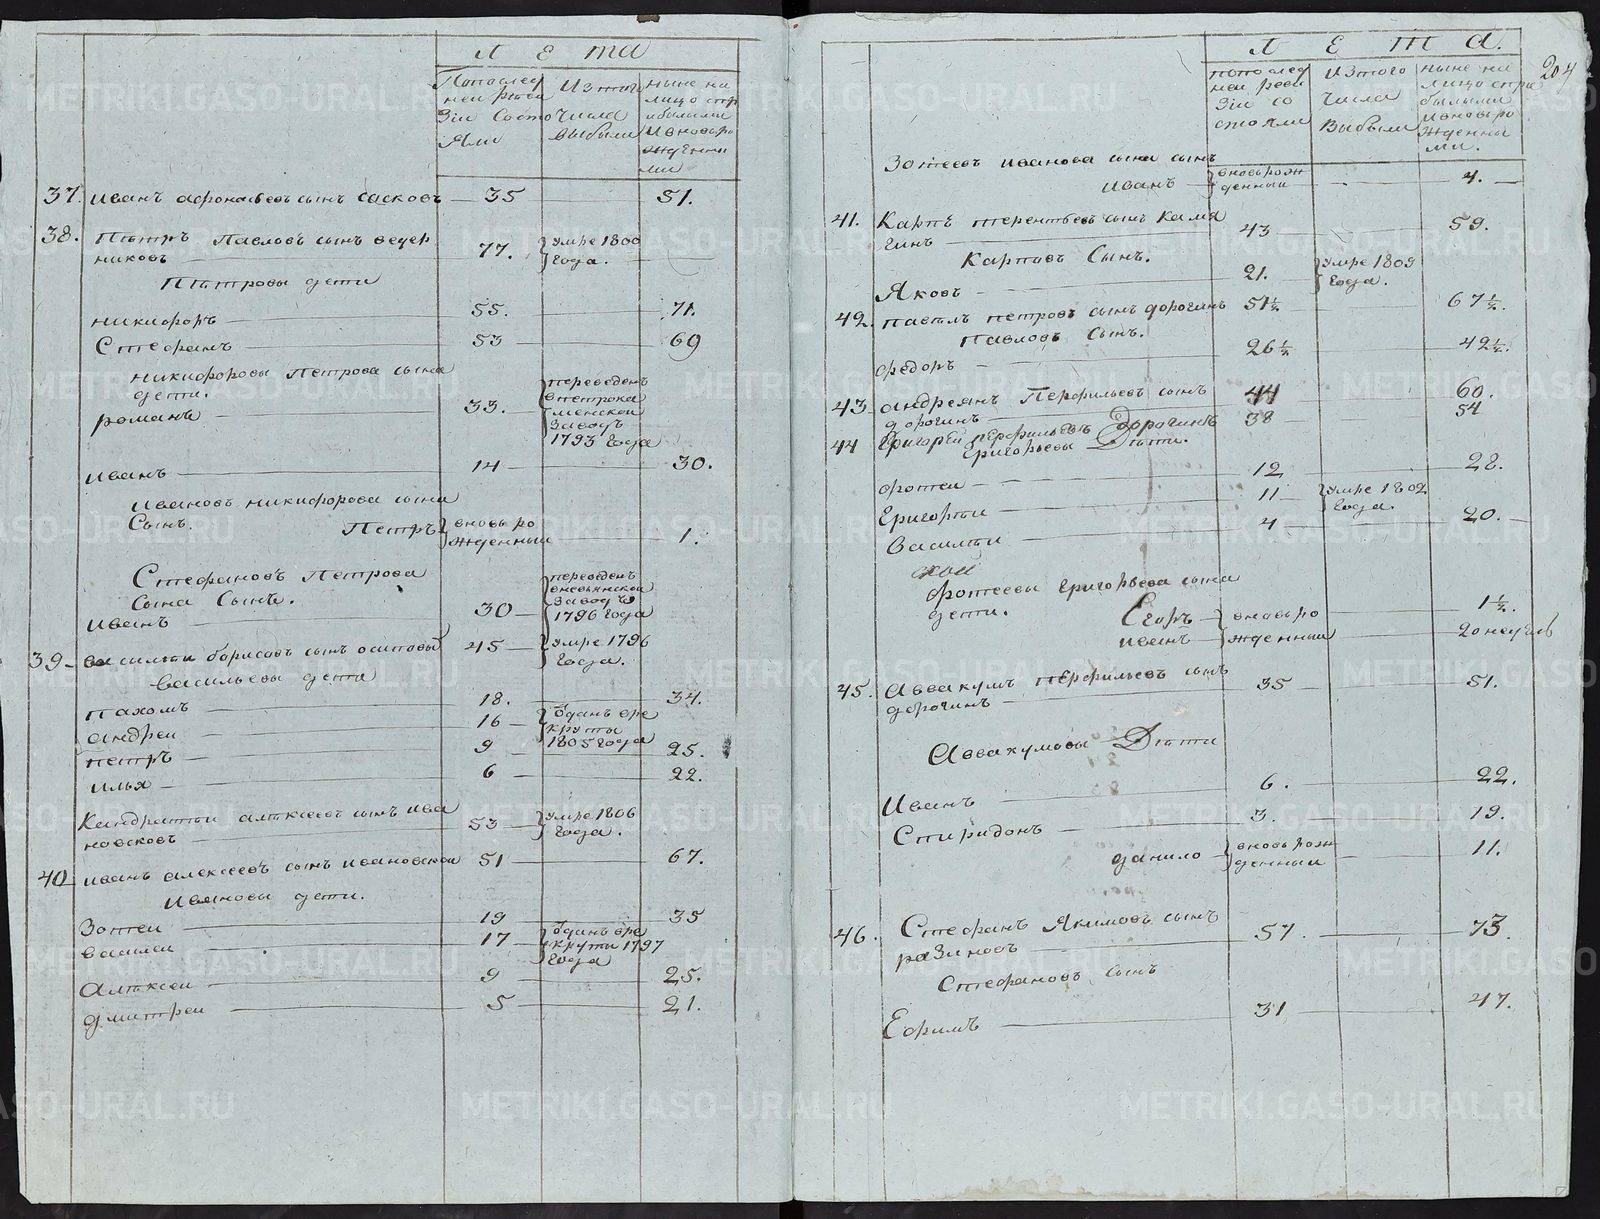 Лета
Попослед
ней реви
зіи Состо
Яли
Изтого
Числа
выбыли
ныне на
лицо спри
былыми
Ивновьро
жденны
ми
37. иванъ афонасьевъ сынъ сасковъ 35 51.
38. Пѣтръ Павловъ сынъ ведер
никовъ 77. умре 1800
года.
Пѣтровы дети
никифоръ 55. 71.
Стефанъ 53 69
никифоровы Петрова сына
дети.
романъ 33. переведенъ
вПетрока
менской
Заводъ
1793 года
иванъ 14 30.
ивановъ никифорова сына
Сынъ. Петръ вновь ро
жденный 1.
Стефановъ Петрова
сына Сынъ.
иванъ 30 переведенъ
вневьянской
Заводъ
1796 года
39 василѣи борисовъ сынъ осиповы 45 умре 1796
года.
васильевы дети
пахомъ 18. 34.
андреи 16 Оданъ вре
круты
1805 года
петръ 9 25.
илья 6 22.
Кандратѣи алѣксеевъ сынъ ива
новсковъ 53 умре 1806
года.
40 иванъ алексеевъ сынъ ивановскои 51 67.
ивановы дети.
Зотеи 19 35
василеи 17 Оданъ вре
круты 1797
года
Алѣксеи 9 25.
дмитреи 5 21.
204
Лета.
попослед
ней реви
Зіи со
стояли
Изтого
Числа
Выбыли
ныне на
лицо спри
былыми
Ивновьро
жденны
ми.
Зотеевъ иванова сына сынъ
иванъ вновьрож
денный 4.
41. Карпъ терентьевъ сынъ Каля
гинъ 43 59.
Карповъ Сынъ.
Яковъ 21. умре 1809
года.
42. павѣлъ петровъ сынъ дорогинъ 51½ 67½.
Павловъ Сынъ.
федоръ 26½ 42½.
43. андреянъ Перфильевъ сынъ
дорогинъ 44 60.
44 Григореи перфильевъ Дорогинъ 38 54
Григорьевы Дѣти.
фотеи 12 28.
Григорѣи 11 умре 1802
года.
Василѣи 4 20.
фотеевы григорьева сына
дети. Егоръ вновь ро 1½.
иванъ жденныи 20 недель
45. Аввакумъ перфильевъ сынъ
дорогинъ 35 51.
Аввакумовы Дѣти
Иванъ 6. 22.
Спиридонъ 3. 19.
данило вновь рож
денныи 11.
46. Стефанъ Якимовъ сынъ
разиновъ 57 73.
Стефановъ сынъ
Ефимъ 31 47.